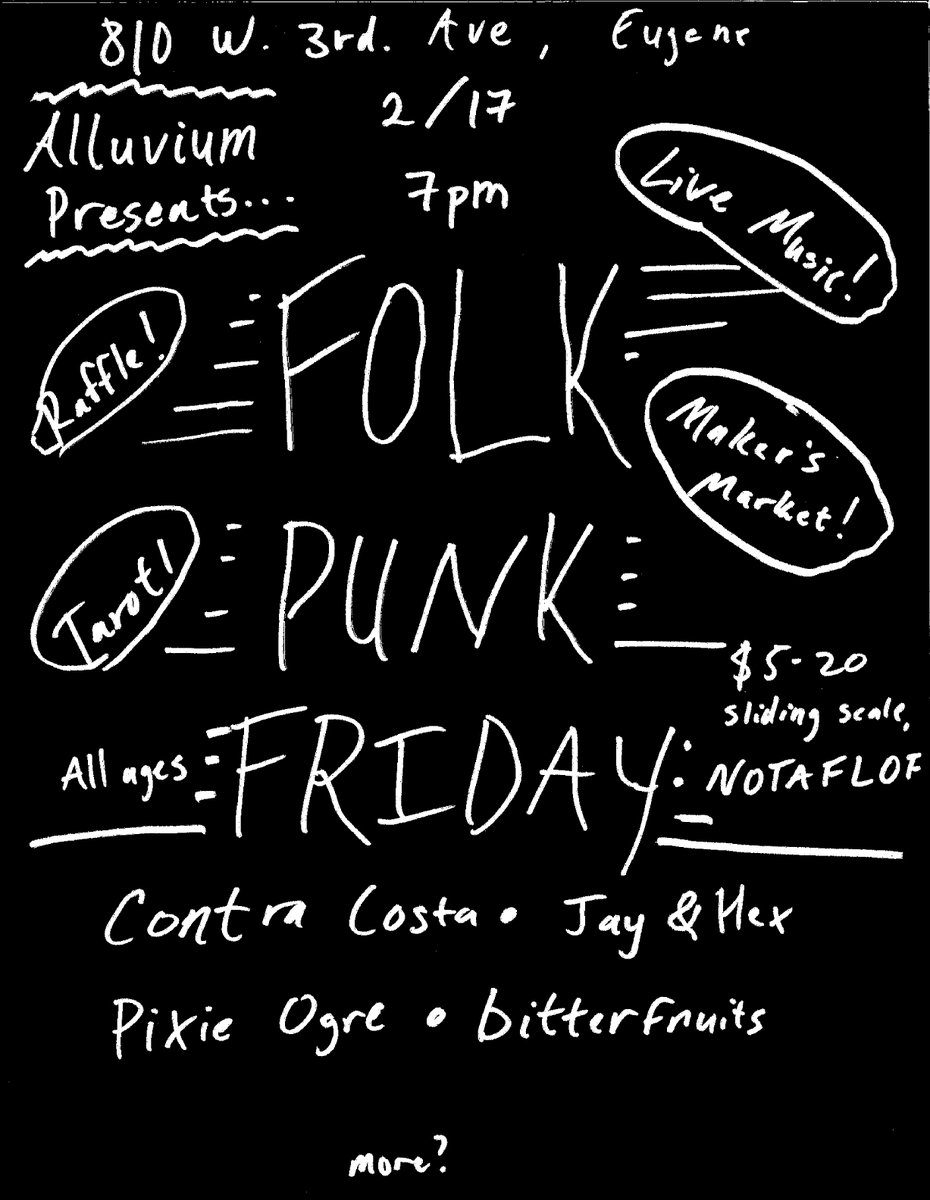 810 W. 3rd. Ave, Eugene
Alluvium
Presents...
2/17
7pm
Live Music!
Raffle!
FOLK
Maker's
Market!
Tarot!
PUNK
$5-20
sliding scale,
NOTAFLOF
All ages
FRIDAY
Contra Costa • Jay & Hex
Pixie Ogre • bitterfruits
more?